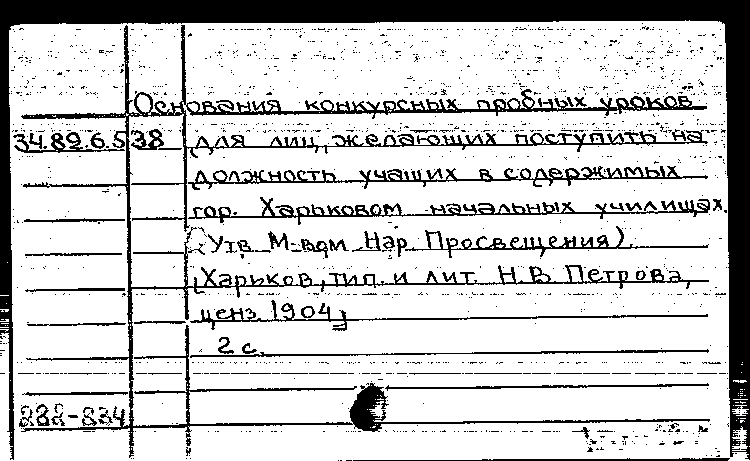 Основания конкурсных пробных уроков
34.89.6.538 для лиц, желающих поступить на
должность учащих в содержимых
гор. Харьковом начальных училищах.
(Утв. М-вом Нар. Просвещения)
[Харьков, тип. и лит. Н.В. Петрова,
ценз. 1904]
2 с.
282-834